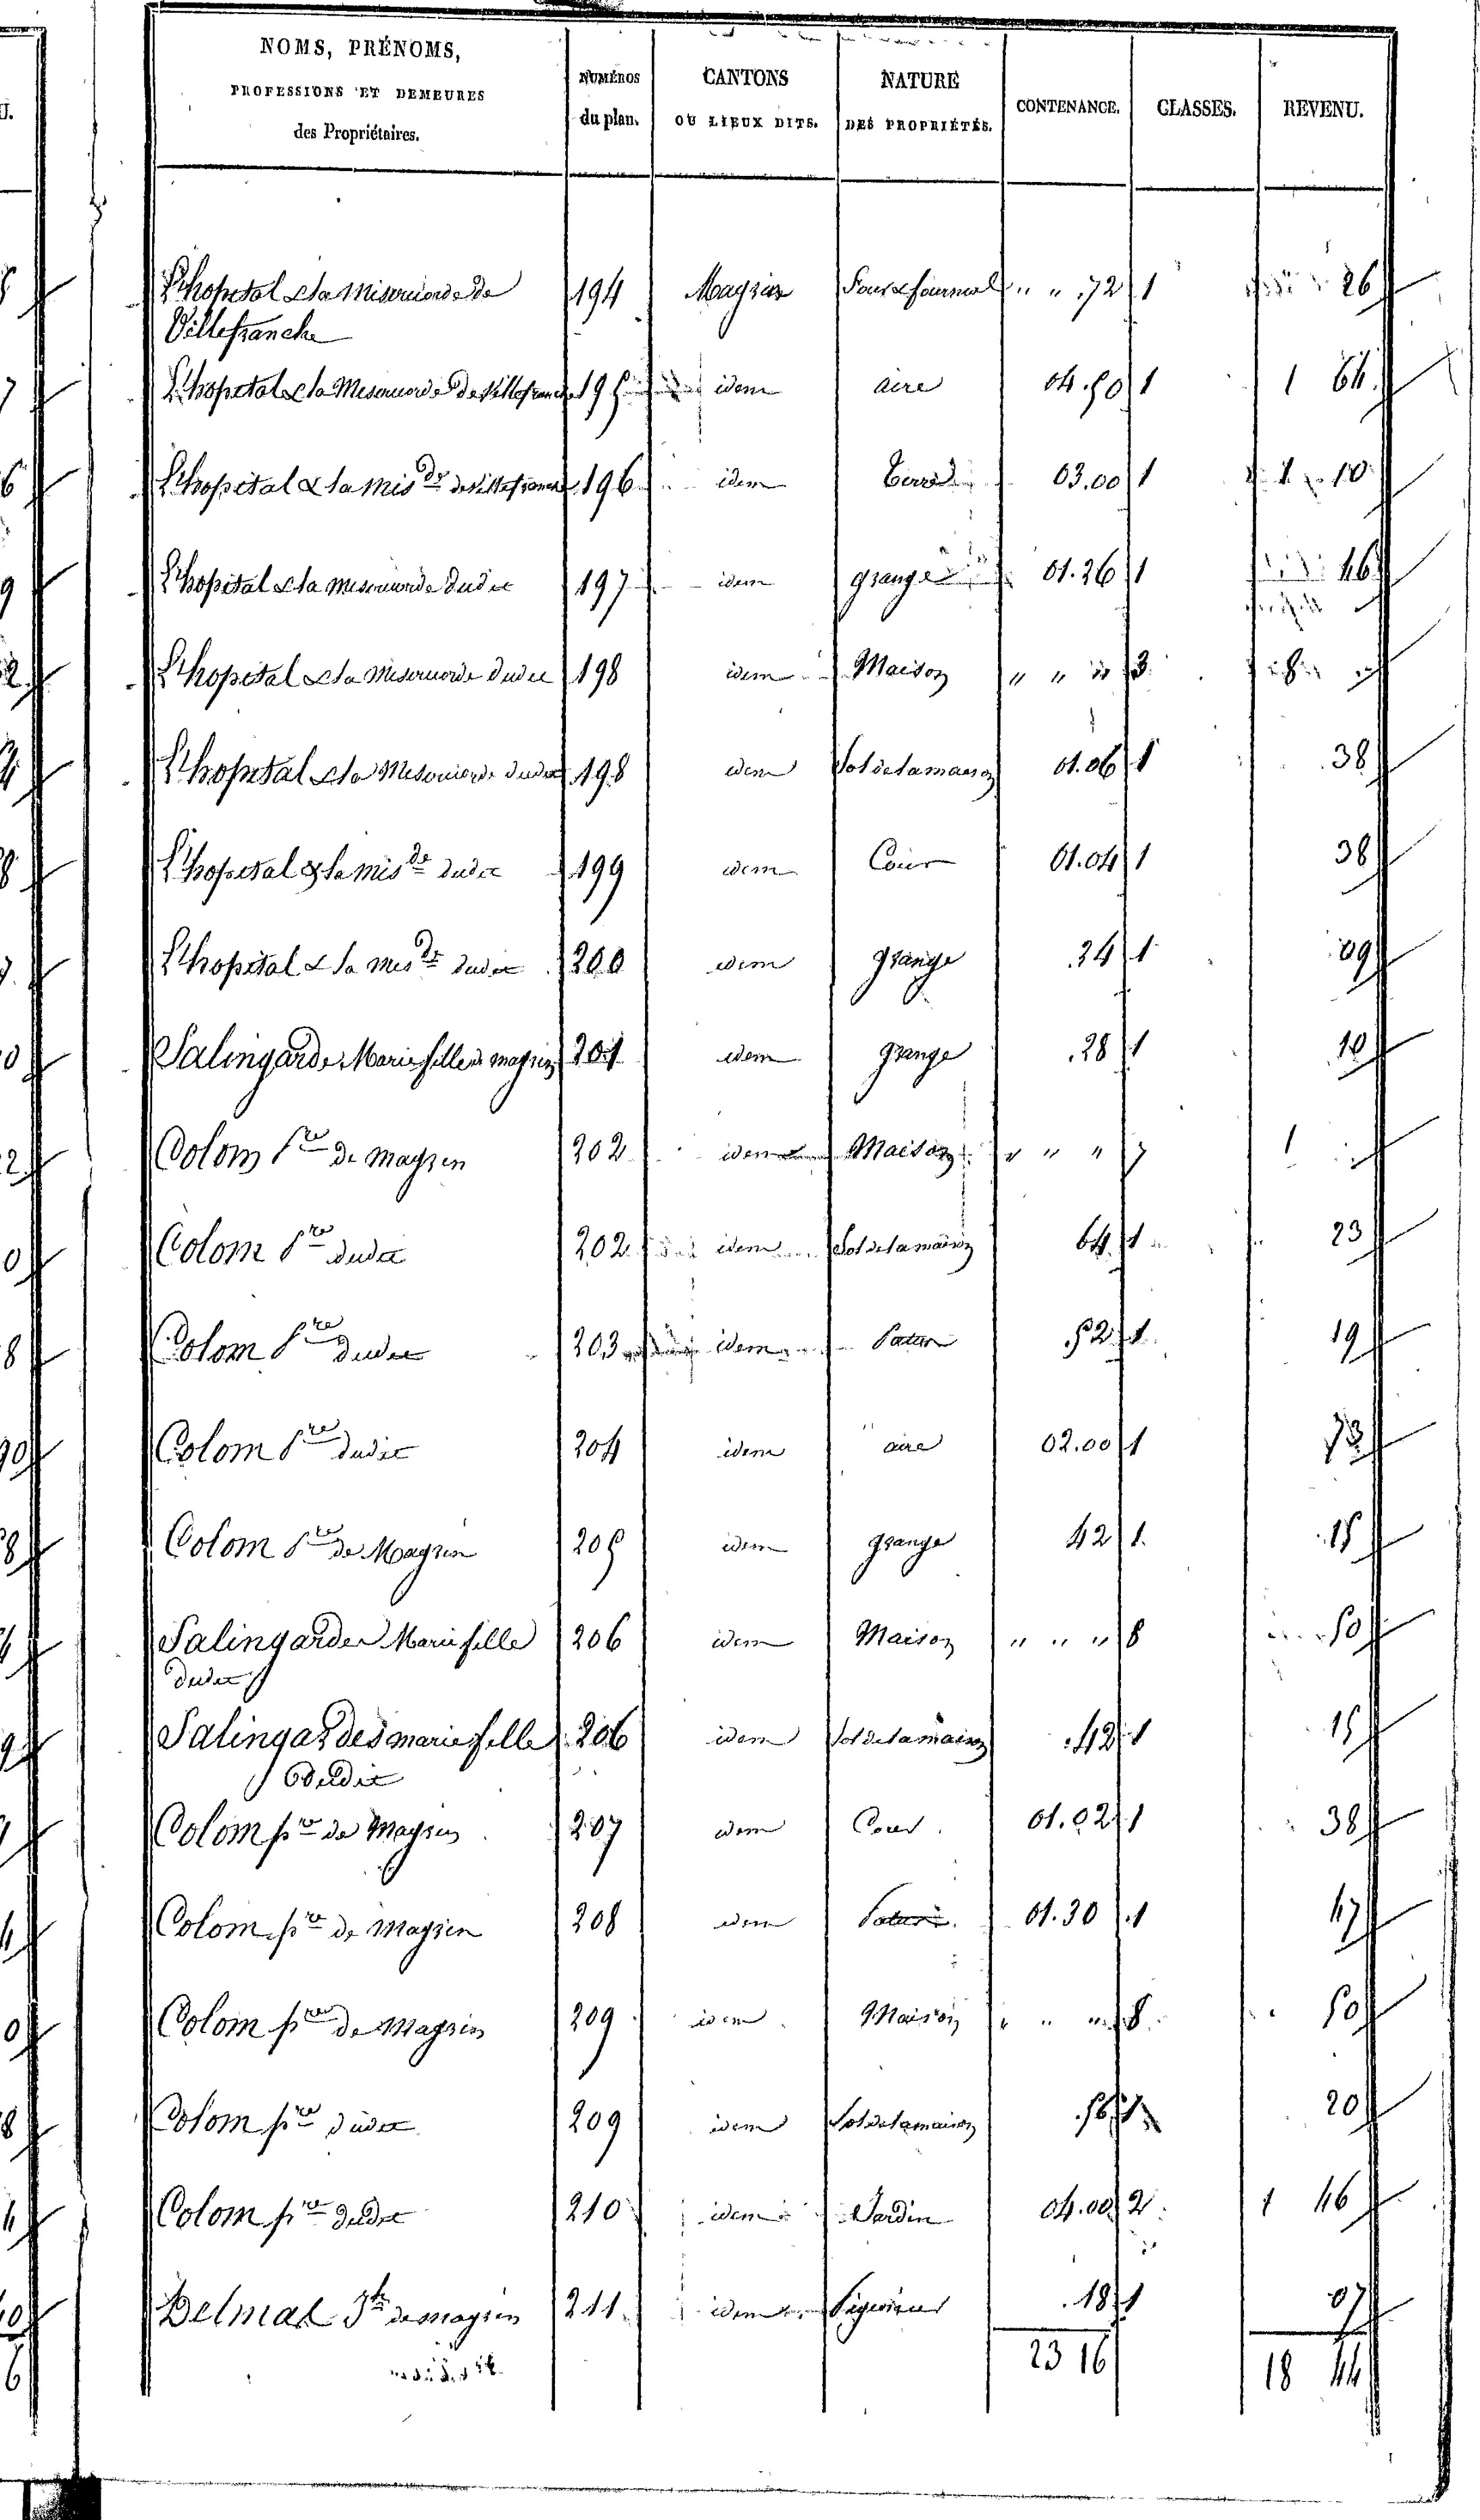 NOMS, PRÉNOMS,
PROFESSIONS ET DEMEURES
des Propriétaires.
NUMÉROS
du plan.
CANTONS
OU LIEUX DITS.
NATURE
DES PROPRIÉTÉS.
CONTENANCE.
CLASSES.
REVENU.
L'hopital & la Misericorde de 194 Mayrin Four & fournial " " 72 1 26
Villefranche
L'hopital & la Misericorde de Villefranche 195 idem aire 04.50 1 1 64
L'hopital & la misde de Villefranche 196 idem terre 03.00 1 1 10
L'hopital & la misericorde dudit 197 idem grange 01.26 1 46
L'hopital & la misericorde dudit 198 idem Maison " " " 3
L'hopital & la Misericorde dudit 198 idem Sol de la maison 01.06 1 38
L'hopital & la misde dudit 199 idem Cour 01.04 1 38
L'hopital & la misde dudit 200 idem grange 24 1 09
Salingardes Marie fille de mayrin 201 idem grange 28 1 10
Colom Pre de mayrin 202 idem Maison " " " 7 1
Colom Pre dudit 202 idem Sol de la maison 64 1 23
Colom Pre dudit 203 idem Patus 52 1 19
Colom Pre dudit 204 idem aire 02.00 1 73
Colom Pre de Mayrin 205 idem grange 42 1 15
Salingardes Marie fille 206 idem Maison " " " 8 50
dudit
Salingardes marie fille 206 idem Sol de la maison 42 1 15
dudit
Colom pre de Mayrin 207 idem Cour 01.02 1 38
Colom pre de Mayrin 208 idem Patus 01.30 1 47
Colom pre de Mayrin 209 idem Maison " " " 8 50
Colom pre dudit 209 idem Sol de la maison 56 1 20
Colom pre dudit 210 idem Jardin 04.00 2 1 46
Delmas Jh de mayrin 211 idem 18 1 07
23 16 18 44